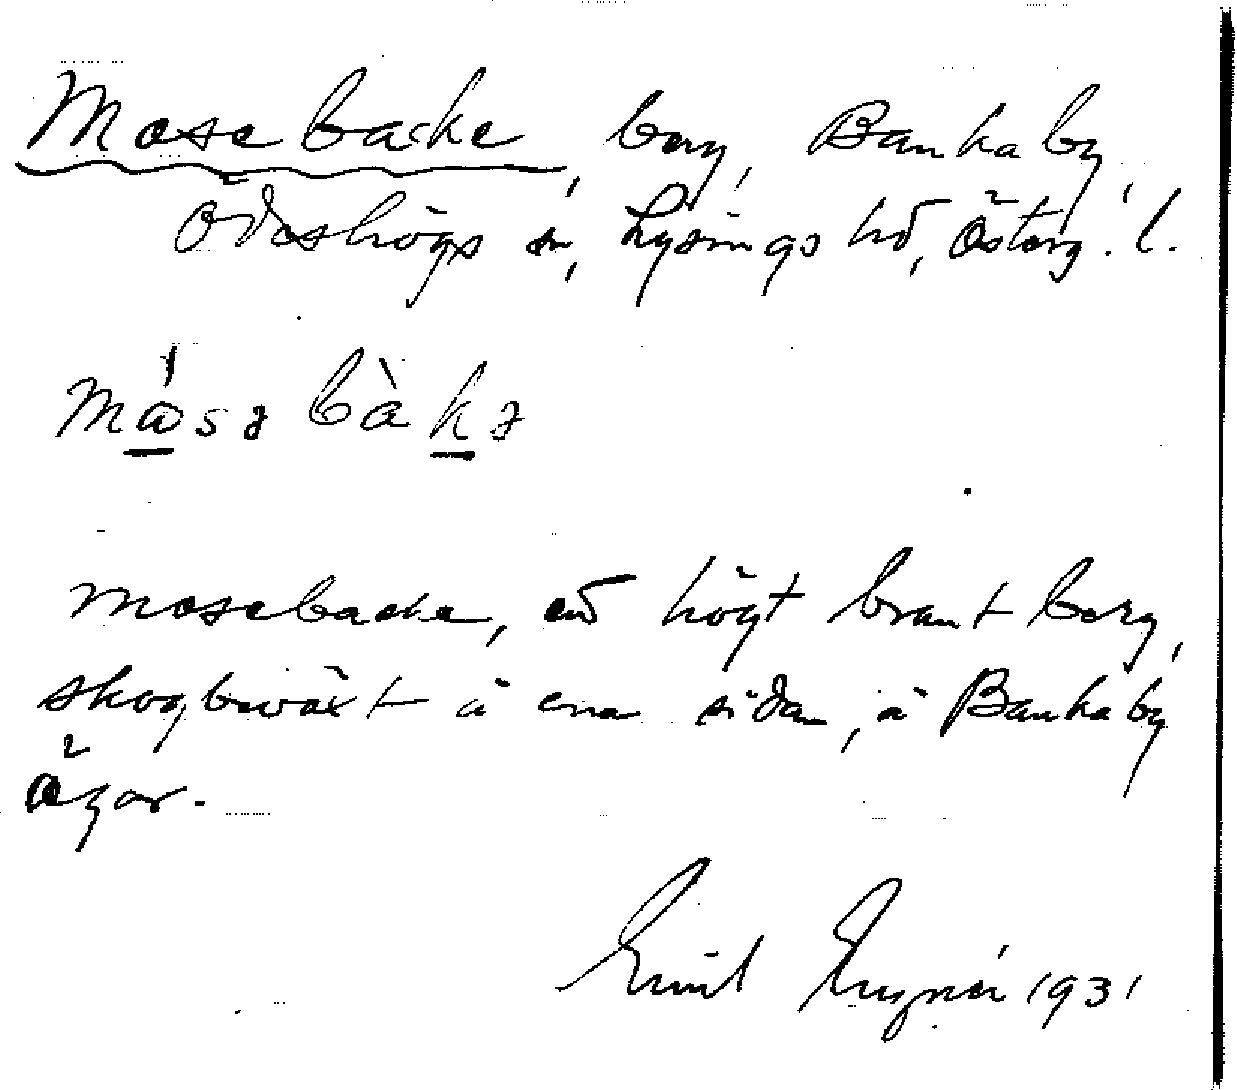 Mosebacke, berg, Bankaby,
Ödeshögs sn, Lysings hd, Österg. l.
mósə bàkə
Mosebacke, ett högt brant berg,
skogbeväxt å ena sidan, å Bankaby
ägor.
Emil 1931